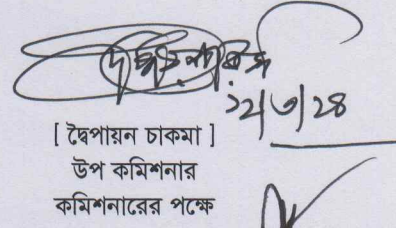 ১২/৩/২৪
[ দ্বৈপায়ন চাকমা ]
উপ কমিশনার
কমিশনারের পক্ষে